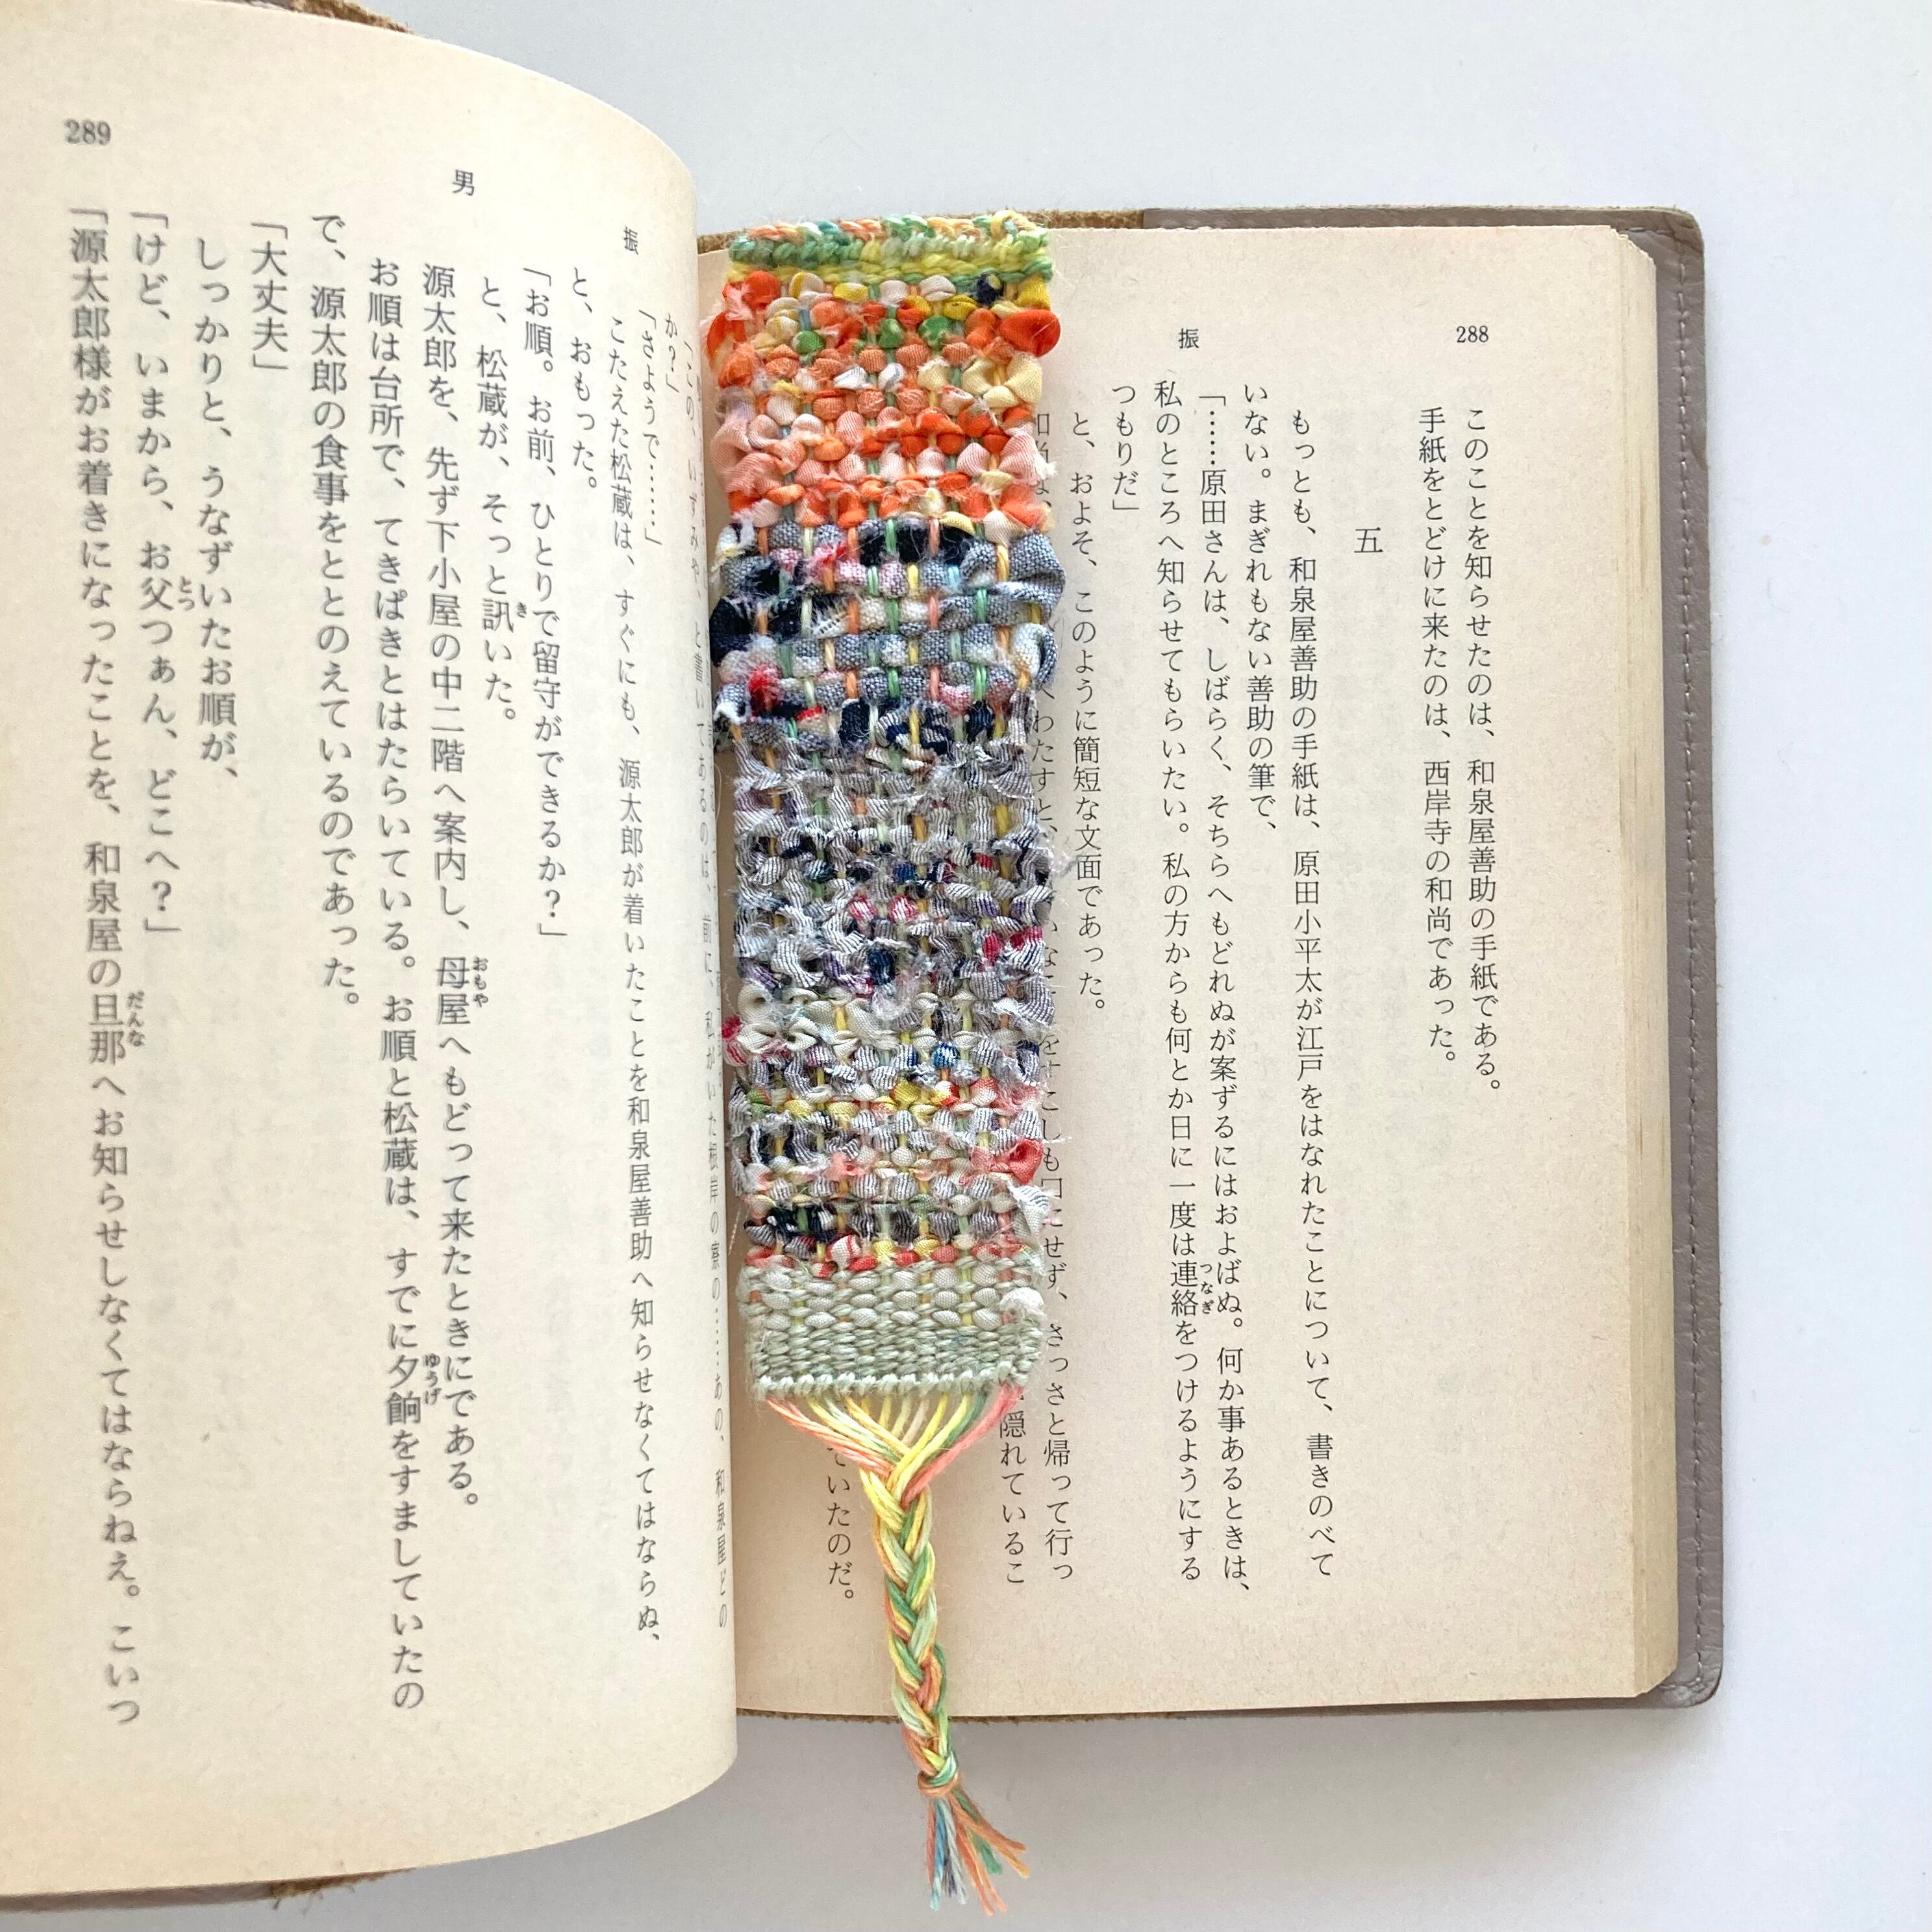 288
振
このことを知らせたのは、和泉屋善助の手紙である。
手紙をとどけに来たのは、西岸寺の和尚であった。
五
もっとも、和泉屋善助の手紙は、原田小平太が江戸をはなれたことについて、書きのべて
いない。まぎれもない善助の筆で、
「……原田さんは、しばらく、そちらへもどれぬが案ずるにはおよばぬ。何か事あるときは、
私のところへ知らせてもらいたい。私の方からも何とか日に一度は連絡をつけるようにする
つなぎ
つもりだ」
と、およそ、このように簡短な文面であった。
わたすと、
をすこしも口にせず、さっさと帰って行っ
隠れているこ
ていたのだ。
289
男
振
「この、いずみや、と書いてあるのは、前に、私がいた根岸の寮の……あの、和泉屋どの
か?」
「さようで……」
こたえた松蔵は、すぐにも、源太郎が着いたことを和泉屋善助へ知らせなくてはならぬ、
と、おもった。
「お順。お前、ひとりで留守ができるか?」
と、松蔵が、そっと訊いた。
き
源太郎を、先ず下小屋の中二階へ案内し、母屋へもどって来たときにである。
おもや
お順は台所で、てきぱきとはたらいている。お順と松蔵は、すでに夕餉をすましていたの
ゆうげ
で、源太郎の食事をととのえているのであった。
「大丈夫」
しっかりと、うなずいたお順が、
「けど、いまから、お父つぁん、どこへ?」
とっ
「源太郎様がお着きになったことを、和泉屋の旦那へお知らせしなくてはならねえ。こいつ
だんな